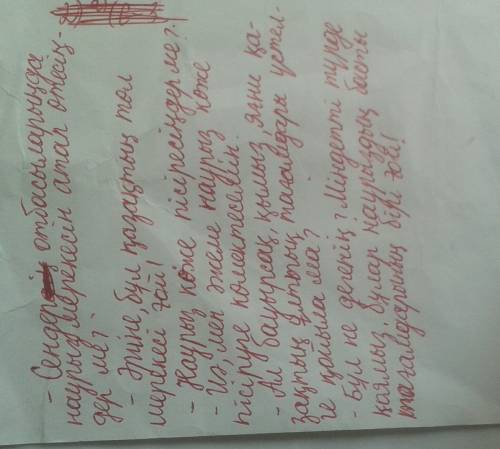 - Сендер отбасыларыңда
наурыз мерекесін атап өтесіз-
дер ме?
- Әрине, бұл қазақтың төл
мерекесі ғой!
- Наурыз көже пісіресіңдер ме?
- Иә, мен әжеме наурыз көже
пісіруге көмектесемін.
- Ал бауырсақ, қымыз, яғни қа-
зақтың ұлттық тағамдары үстел-
ге қойыла ма?
- Бұл не дегенің? Міндетті түрде
қоямыз, бұлар Наурыздың басты
тағамдарының бірі ғой!